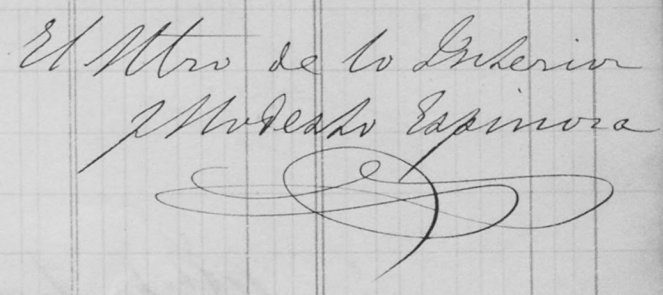 El Mtro de lo Interior
Modesto Espinosa